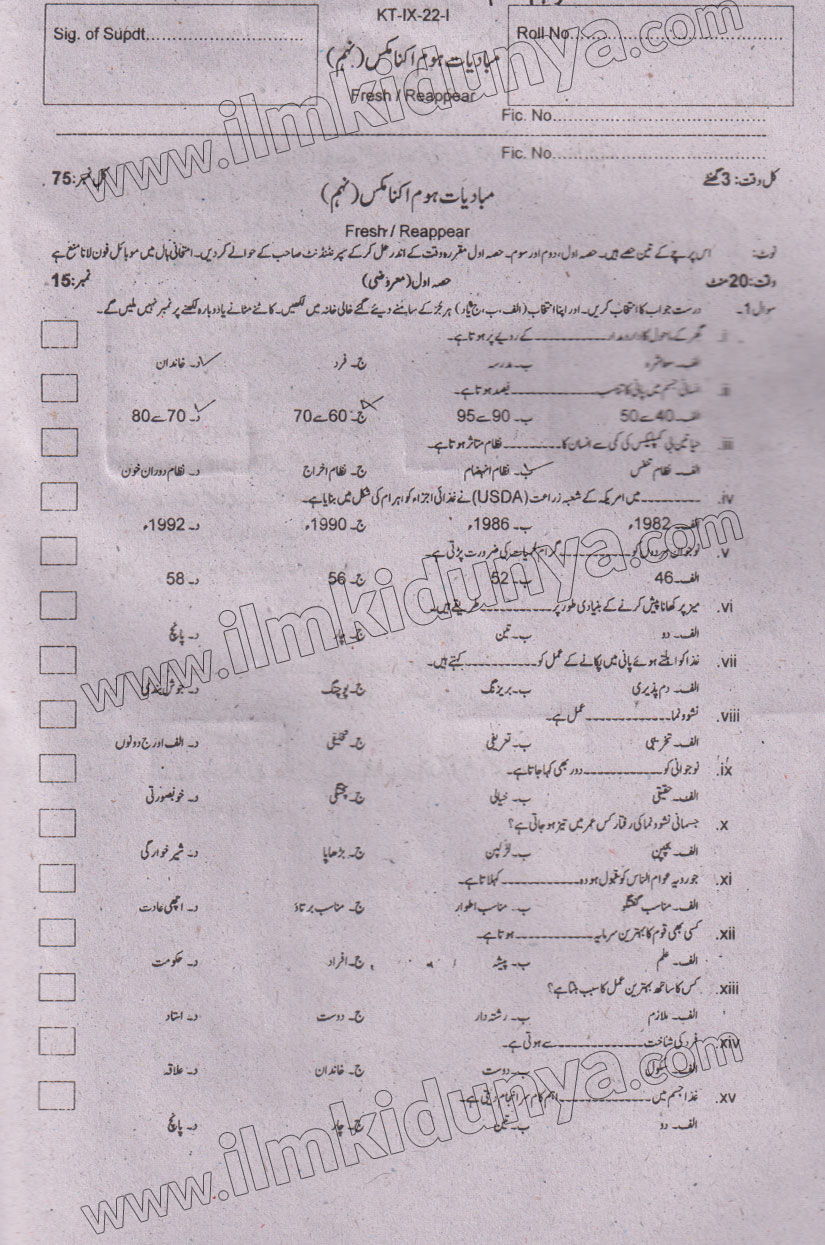 KT-IX-22-I
Sig. of Supdt............................
مبادیات ہوم اکنامکس (نہم)
Roll No....................................
Fresh / Reappear
Fic. No....................................
Fic. No....................................
کل وقت: 3 گھنٹے
کل نمبر: 75
مبادیات ہوم اکنامکس (نہم)
Fresh / Reappear
نوٹ: اس پرچے کے تین حصے ہیں۔ حصہ اول، دوم اور سوم۔ حصہ اول مقررہ وقت کے اندر حل کر کے سپرنٹنڈنٹ صاحب کے حوالے کر دیں۔ امتحانی ہال میں موبائل فون لانا منع ہے
وقت: 20 منٹ حصہ اول (معروضی) نمبر: 15
سوال 1۔ درست جواب کا انتخاب کریں۔ اور اپنا انتخاب (الف، ب، ج یا د) ہر جُز کے سامنے دیئے گئے خالی خانہ میں لکھیں۔ کاٹنے مٹانے یا دوبارہ لکھنے پر نمبر نہیں ملیں گے۔
i. گھر کے ماحول کا دارومدار ــــــــــــ کے رویے پر ہوتا ہے۔
الف۔ معاشرہ ب۔ مدرسہ ج۔ فرد د۔ خاندان
ii. انسانی جسم میں پانی کا تناسب ــــــــــــ فیصد ہوتا ہے۔
الف۔ 40 سے 50 ب۔ 90 سے 95 ج۔ 60 سے 70 د۔ 70 سے 80
iii. حیاتین بی کمپلیکس کی کمی سے انسان کا ــــــــــــ نظام متاثر ہوتا ہے۔
الف۔ نظام تنفس ب۔ نظام انہضام ج۔ نظام اخراج د۔ نظام دوران خون
iv. ــــــــــــ میں امریکہ کے شعبہ زراعت (USDA) نے غذائی اجزاء کو اہرام کی شکل میں بنایا ہے۔
الف۔ 1982ء ب۔ 1986ء ج۔ 1990ء د۔ 1992ء
v. نوجوان مردوں کو ــــــــــــ گرام لحمیات کی ضرورت پڑتی ہے۔
الف۔ 46 ب۔ 52 ج۔ 56 د۔ 58
vi. میز پر کھانا پیش کرنے کے بنیادی طور پر ــــــــــــ طریقے ہیں۔
الف۔ دو ب۔ تین ج۔ چار د۔ پانچ
vii. غذا کو ابلتے ہوئے پانی میں پکانے کے عمل کو ــــــــــــ کہتے ہیں۔
الف۔ دم پذیری ب۔ بریزنگ ج۔ پوچنگ د۔ جوش بندی
viii. نشوونما ــــــــــــ عمل ہے۔
الف۔ تخریبی ب۔ تعریفی ج۔ تخلیقی د۔ الف اور ج دونوں
ix. نوجوانی کو ــــــــــــ دور بھی کہا جاتا ہے۔
الف۔ حقیقی ب۔ خیالی ج۔ پختگی د۔ خوبصورتی
x. جسمانی نشوونما کی رفتار کس عمر میں تیز ہو جاتی ہے؟
الف۔ بچپن ب۔ لڑکپن ج۔ بڑھاپا د۔ شیر خوارگی
xi. جو رویہ عوام الناس کو قبول ہو وہ ــــــــــــ کہلاتا ہے۔
الف۔ مناسب گفتگو ب۔ مناسب اطوار ج۔ مناسب برتاؤ د۔ اچھی عادت
xii. کسی بھی قوم کا بہترین سرمایہ ــــــــــــ ہوتا ہے۔
الف۔ علم ب۔ پیشہ ج۔ افراد د۔ حکومت
xiii. کس کا ساتھ بہترین عمل کا سبب بنتا ہے؟
الف۔ ملازم ب۔ رشتہ دار ج۔ دوست د۔ استاد
xiv. فرد کی شناخت ــــــــــــ سے ہوتی ہے۔
الف۔ سکول ب۔ دوست ج۔ خاندان د۔ علاقہ
xv. غذا جسم میں ــــــــــــ اہم کام سرانجام دیتی ہے۔
الف۔ دو ب۔ تین ج۔ چار د۔ پانچ
www.ilmkidunya.com
www.ilmkidunya.com
www.ilmkidunya.com